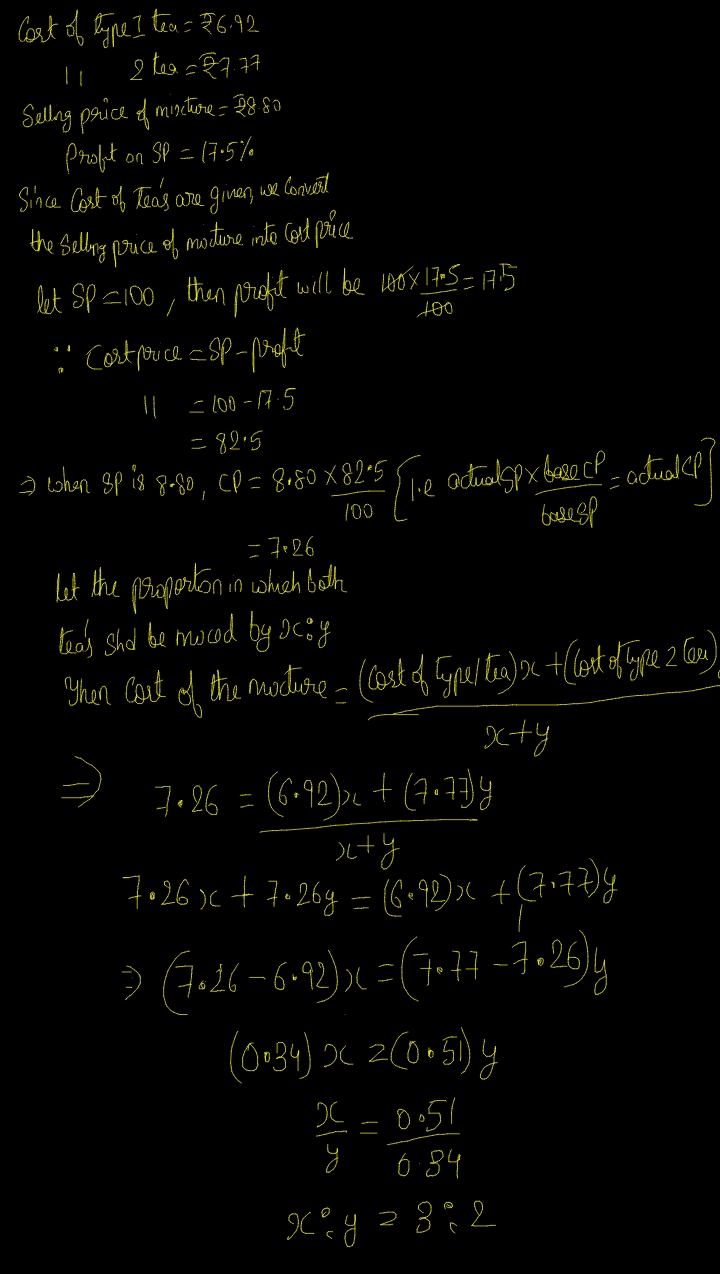 Cost of type I tea = ₹6.92
11 2 tea = ₹7.77
Selling price of mixture = ₹8.80
Profit on SP = 17.5%
Since Cost of Tea's are given, we Convert
the Selling price of mixture into Cost price
let SP = 100, then profit will be 100 × 17.5/100 = 17.5
∵ Cost price = SP - profit
11 = 100 - 17.5
= 82.5
⇒ when SP is 8.80, CP = 8.80 × 82.5/100 [i.e actual SP × base CP/base SP = actual CP]
= 7.26
let the proportion in which both
tea's shd be mixed by x:y
Then Cost of the mixture = (Cost of type 1 tea)x + (Cost of type 2 tea)/x+y
⇒ 7.26 = (6.92)x + (7.77)y/x+y
7.26x + 7.26y = (6.92)x + (7.77)y
⇒ (7.26 - 6.92)x = (7.77 - 7.26)y
(0.34)x = (0.51)y
x/y = 0.51/0.34
x:y = 3:2